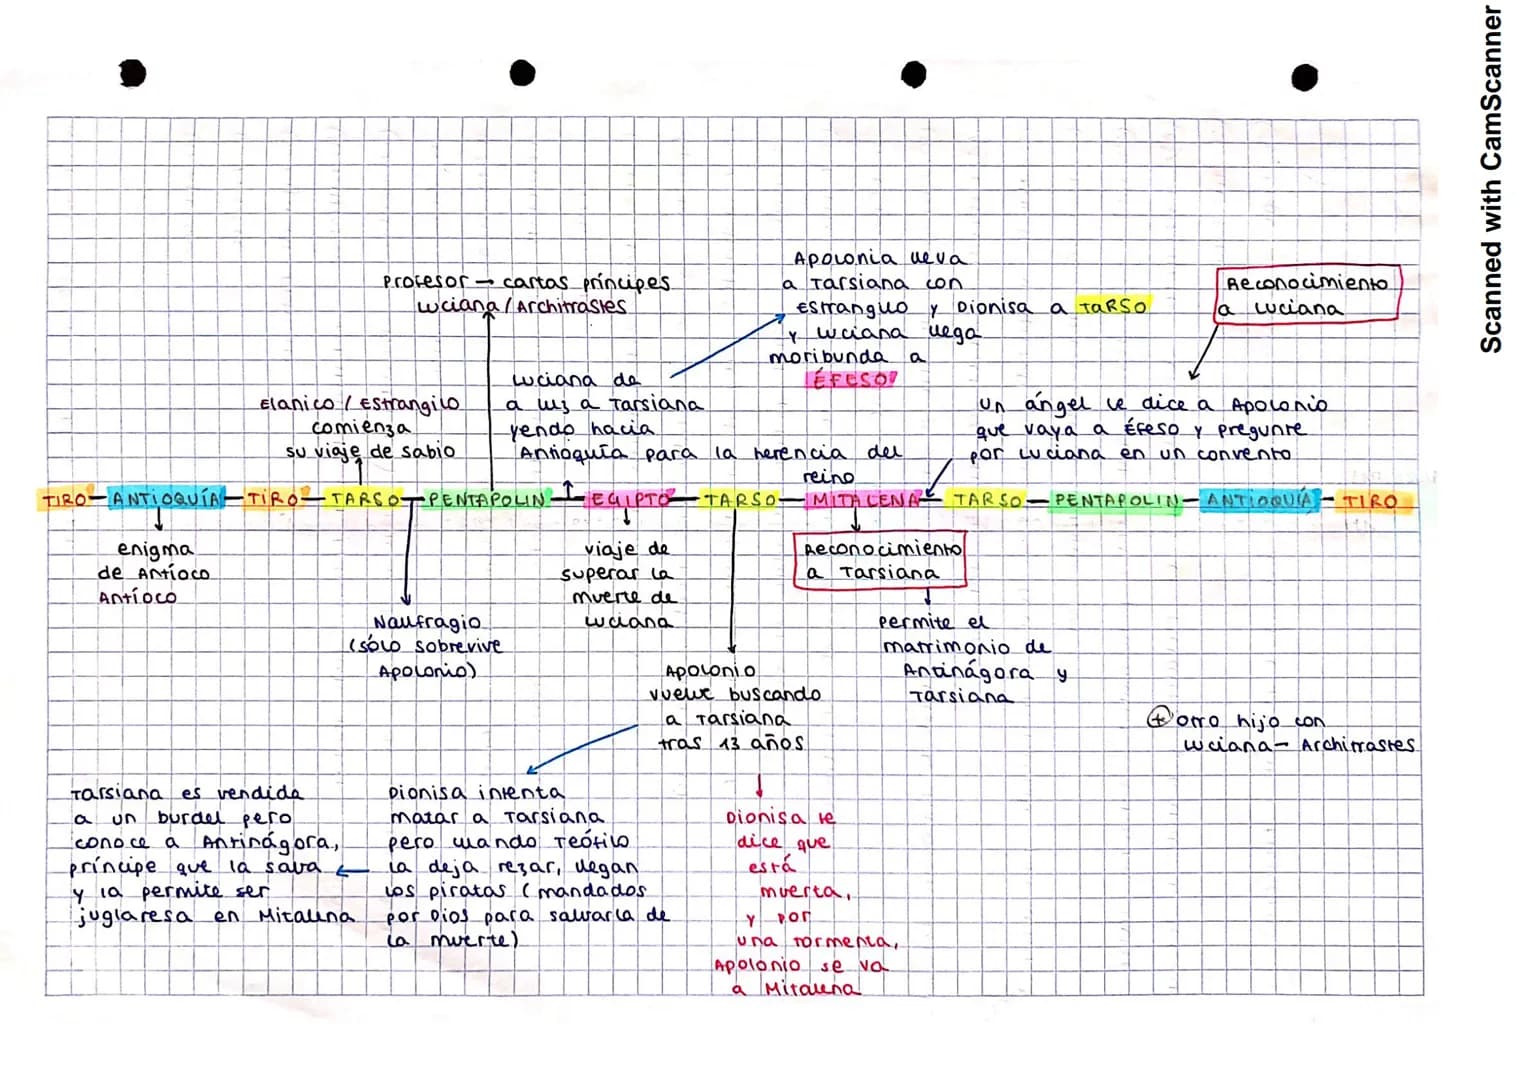 Scanned with CamScanner
Profesor → cartas príncipes
Luciana / Architrastes
Apolonia lleva
a Tarsiana con
Estrangilo y Dionisa a TARSO
y Luciana llega
moribunda a
ÉFESO
Reconocimiento
a Luciana
Elanico / Estrangilo
comienza
su viaje de sabio
Luciana da
a luz a Tarsiana
yendo hacia
Antioquía para la herencia del
reino
un ángel le dice a Apolonio
que vaya a Éfeso y pregunte
por Luciana en un convento
TIRO - ANTIOQUÍA - TIRO - TARSO - PENTAPOLIN - EGIPTO - TARSO - MITALENA - TARSO - PENTAPOLIN - ANTIOQUÍA - TIRO
enigma
de Antíoco
Antíoco
Naufragio
(sólo sobrevive
Apolonio)
viaje de
superar la
muerte de
Luciana
Reconocimiento
a Tarsiana
permite el
matrimonio de
Antinágora y
Tarsiana
Apolonio
vuelve buscando
a Tarsiana
tras 13 años
+ otro hijo con
Luciana - Architrastes
Tarsiana es vendida
a un burdel pero
conoce a Antinágora,
príncipe que la salva
y la permite ser
juglaresa en Mitalena
Dionisa intenta
matar a Tarsiana
pero cuando Teófilo
la deja rezar, llegan
los piratas (mandados
por Dios para salvarla de
la muerte)
Dionisa le
dice que
está
muerta,
y por
una tormenta,
Apolonio se va
a Mitalena